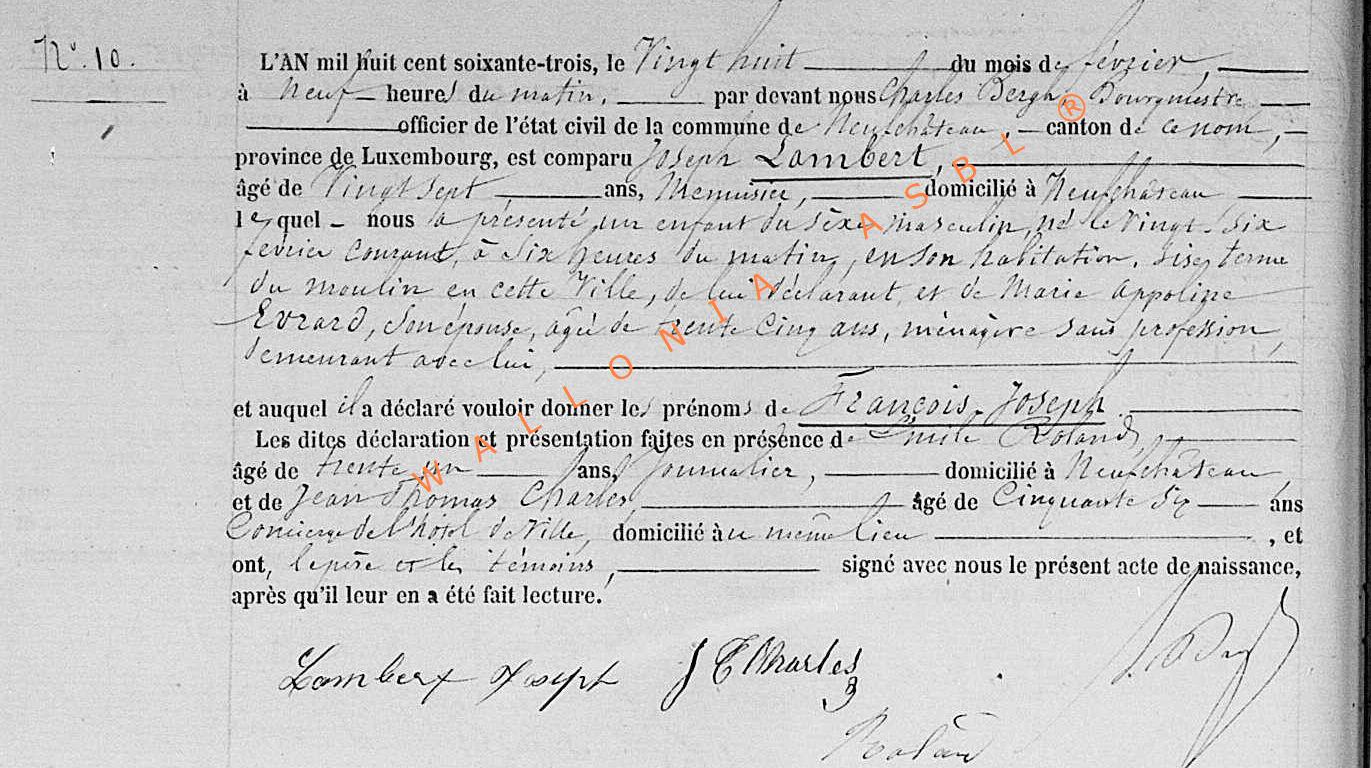 N° 10.
L'AN mil huit cent soixante-trois, le Vingt huit du mois de février,
à Neuf heures du matin, par devant nous Charles Bergh, Bourgmestre
officier de l'état civil de la commune de Neufchâteau, canton de ce nom,
province de Luxembourg, est comparu Joseph Lambert,
âgé de Vingt sept ans, Menuisier, domicilié à Neufchâteau
lequel nous a présenté un enfant du sèxe masculin, né le Vingt-Six
février courant, à Six heures du matin, en son habitation, sise
du moulin en cette Ville, de lui déclarant et de Marie Appoline
Evrard, Son épouse, agée de trente Cinq ans, ménagère sans profession,
demeurant avec lui,
et auquel il a déclaré vouloir donner les prénoms de François-Joseph
Les dites déclaration et présentation faites en présence de Emile Roland,
âgé de trente un ans, Journalier, domicilié à Neufchâteau,
et de Jean Thomas Charles, âgé de Cinquante Six ans
Concierge de l'hotel de Ville, domicilié au même lieu, et
ont, le père et les témoins, signé avec nous le présent acte de naissance,
après qu'il leur en a été fait lecture.
Lambert Joseph J T Charles
Roland
WALLONIA ASBL ®